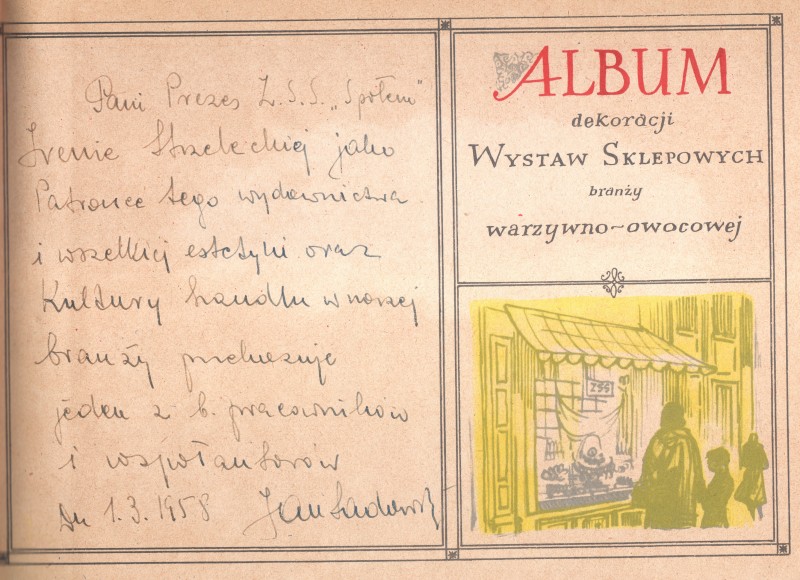 Pani Prezes Z.S.S. „Społem"
Irenie Strzeleckiej jako
Patronce tego wydawnictwa
i wszelkiej estetyki oraz
Kultury handlu w naszej
branży przekazuje
jeden z b. pracowników
i współautorów
Dn 1.3.1958 Jan Sadowski
ALBUM
dekoracji
WYSTAW SKLEPOWYCH
branży
warzywno~owocowej
ZSS